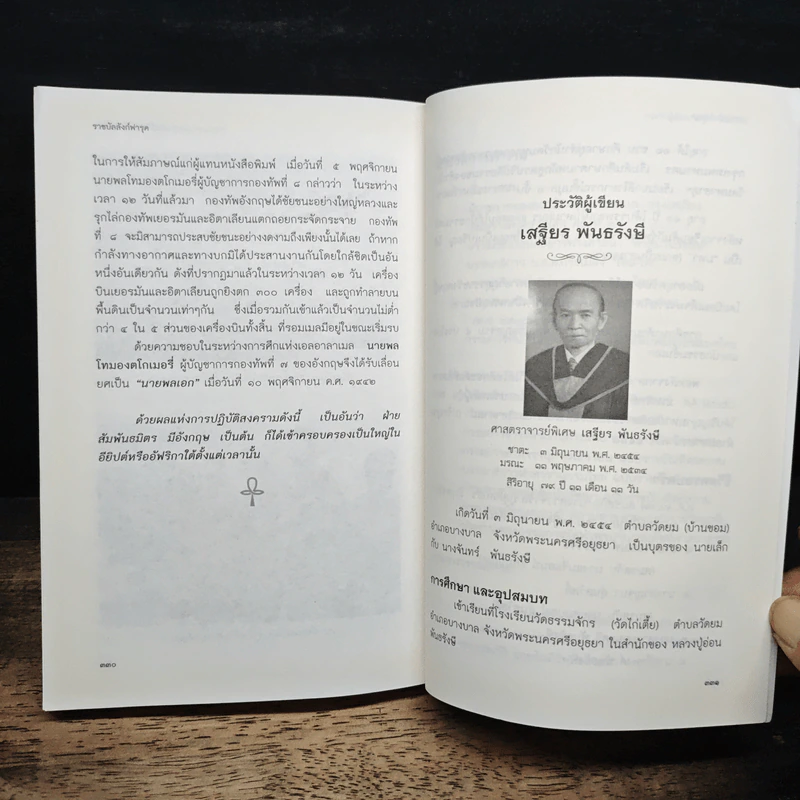 ราชบัลลังก์ฟารุค
ในการให้สัมภาษณ์แก่ผู้แทนหนังสือพิมพ์ เมื่อวันที่ ๕ พฤศจิกายน
นายพลโทมองตโกเมอรี่ผู้บัญชาการกองทัพที่ ๘ กล่าวว่า ในระหว่าง
เวลา ๑๒ วันที่แล้วมา กองทัพอังกฤษได้ชัยชนะอย่างใหญ่หลวงและ
รุกไล่กองทัพเยอรมันและอิตาเลียนแตกถอยกระจัดกระจาย กองทัพ
ที่ ๘ จะมิสามารถประสบชัยชนะอย่างงดงามถึงเพียงนั้นได้เลย ถ้าหาก
กำลังทางอากาศและทางบกมิได้ประสานงานกันโดยใกล้ชิดเป็นอัน
หนึ่งอันเดียวกัน ดังที่ปรากฏมาแล้วในระหว่างเวลา ๑๒ วัน เครื่อง
บินเยอรมันและอิตาเลียนถูกยิงตก ๓๐๐ เครื่อง และถูกทำลายบน
พื้นดินเป็นจำนวนเท่าๆกัน ซึ่งเมื่อรวมกันเข้าแล้วเป็นจำนวนไม่ต่ำ
กว่า ๔ ใน ๕ ส่วนของเครื่องบินทั้งสิ้น ที่รอมเมลมีอยู่ในขณะเริ่มรบ
ด้วยความชอบในระหว่างการศึกแห่งเอลอาลาเมล นายพล
โทมองตโกเมอรี่ ผู้บัญชาการกองทัพที่ ๗ ของอังกฤษจึงได้รับเลื่อน
ยศเป็น “นายพลเอก” เมื่อวันที่ ๑๐ พฤศจิกายน ค.ศ. ๑๙๔๒
ด้วยผลแห่งการปฏิบัติสงครามดังนี้ เป็นอันว่า ฝ่าย
สัมพันธมิตร มีอังกฤษ เป็นต้น ก็ได้เข้าครอบครองเป็นใหญ่ใน
อียิปต์หรืออัฟริกาใต้ตั้งแต่เวลานั้น
๓๓๐
ประวัติผู้เขียน
เสฐียร พันธรังษี
ศาสตราจารย์พิเศษ เสฐียร พันธรังษี
ชาตะ ๓ มิถุนายน พ.ศ. ๒๔๕๔
มรณะ ๑๑ พฤษภาคม พ.ศ. ๒๕๓๔
สิริอายุ ๗๙ ปี ๑๑ เดือน ๑๑ วัน
เกิดวันที่ ๓ มิถุนายน พ.ศ. ๒๔๕๔ ตำบลวัดยม (บ้านขอม)
อำเภอบางบาล จังหวัดพระนครศรีอยุธยา เป็นบุตรของ นายเล็ก
กับ นางจันทร์ พันธรังษี
การศึกษา และอุปสมบท
เข้าเรียนที่โรงเรียนวัดธรรมจักร (วัดไก่เตี้ย) ตำบลวัดยม
อำเภอบางบาล จังหวัดพระนครศรีอยุธยา ในสำนักของ หลวงปู่อ่อน
พันธรังษี
๓๓๑